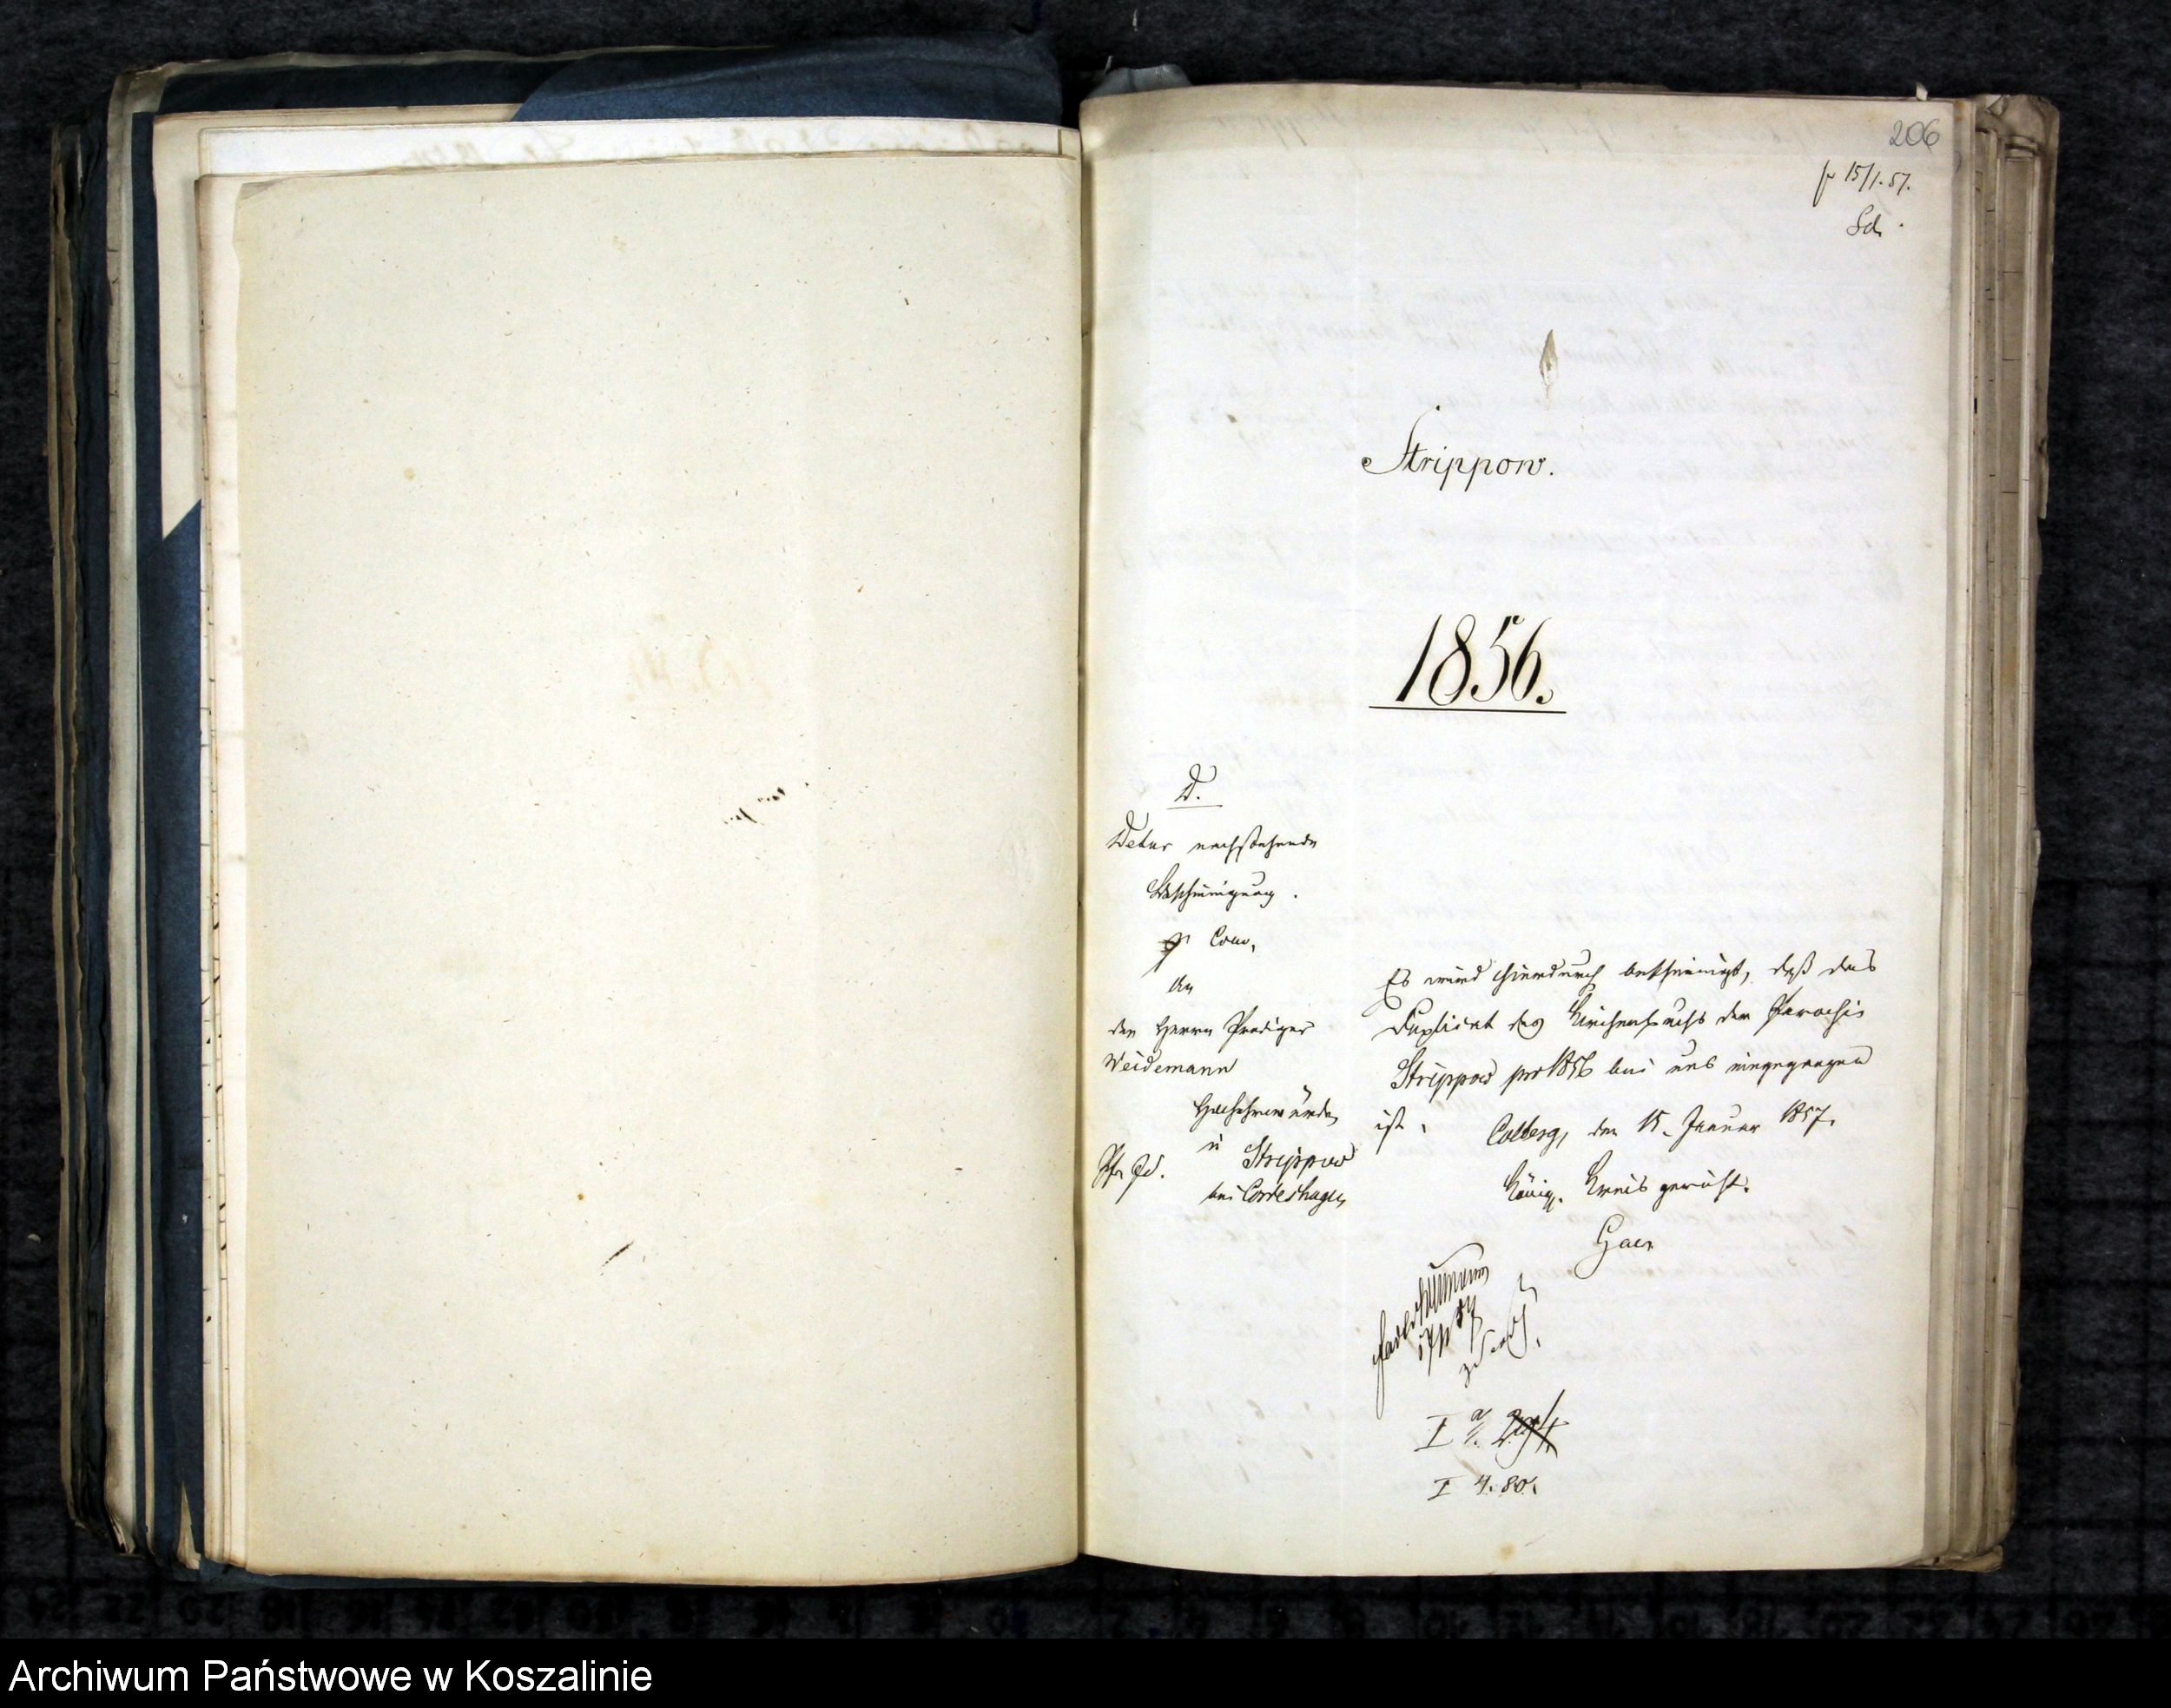 206
pr 15/1.57.
Strippow.
1856.
D.
Detur nachstehende
Bescheinigung.
An
den Herrn Prediger
Weidemann
Hochehrwürden
in Strippow
bei Cordeshagen
Es wird hierdurch bescheinigt, daß das
Duplicat des Kirchenbuchs der Parochie
Strippow pro 1856 bei uns eingegangen
ist. Colberg, den 15. Januar 1857.
Königl. Kreisgericht.
I 4. 80.
Archiwum Państwowe w Koszalinie